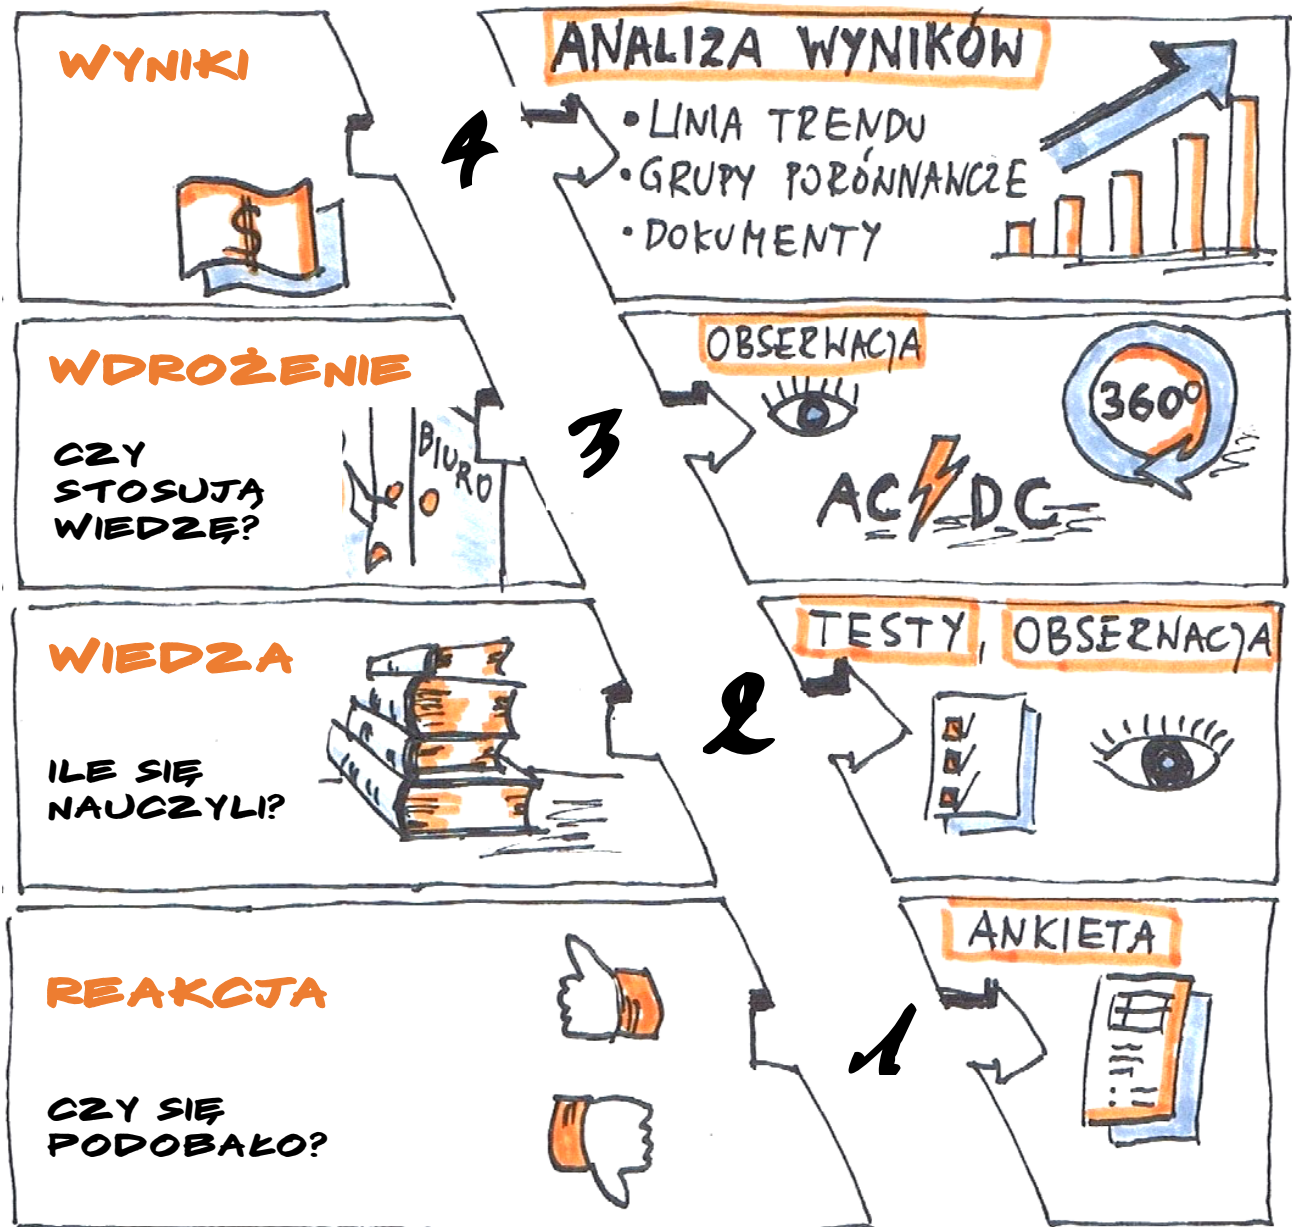 WYNIKI
$
4
ANALIZA WYNIKÓW
• LINIA TRENDU
• GRUPY PORÓWNAWCZE
• DOKUMENTY
WDROŻENIE
CZY
STOSUJĄ
WIEDZĘ?
BIURO
3
OBSERWACJA
360°
AC/DC
WIEDZA
ILE SIĘ
NAUCZYLI?
2
TESTY, OBSERWACJA
REAKCJA
CZY SIĘ
PODOBAŁO?
1
ANKIETA